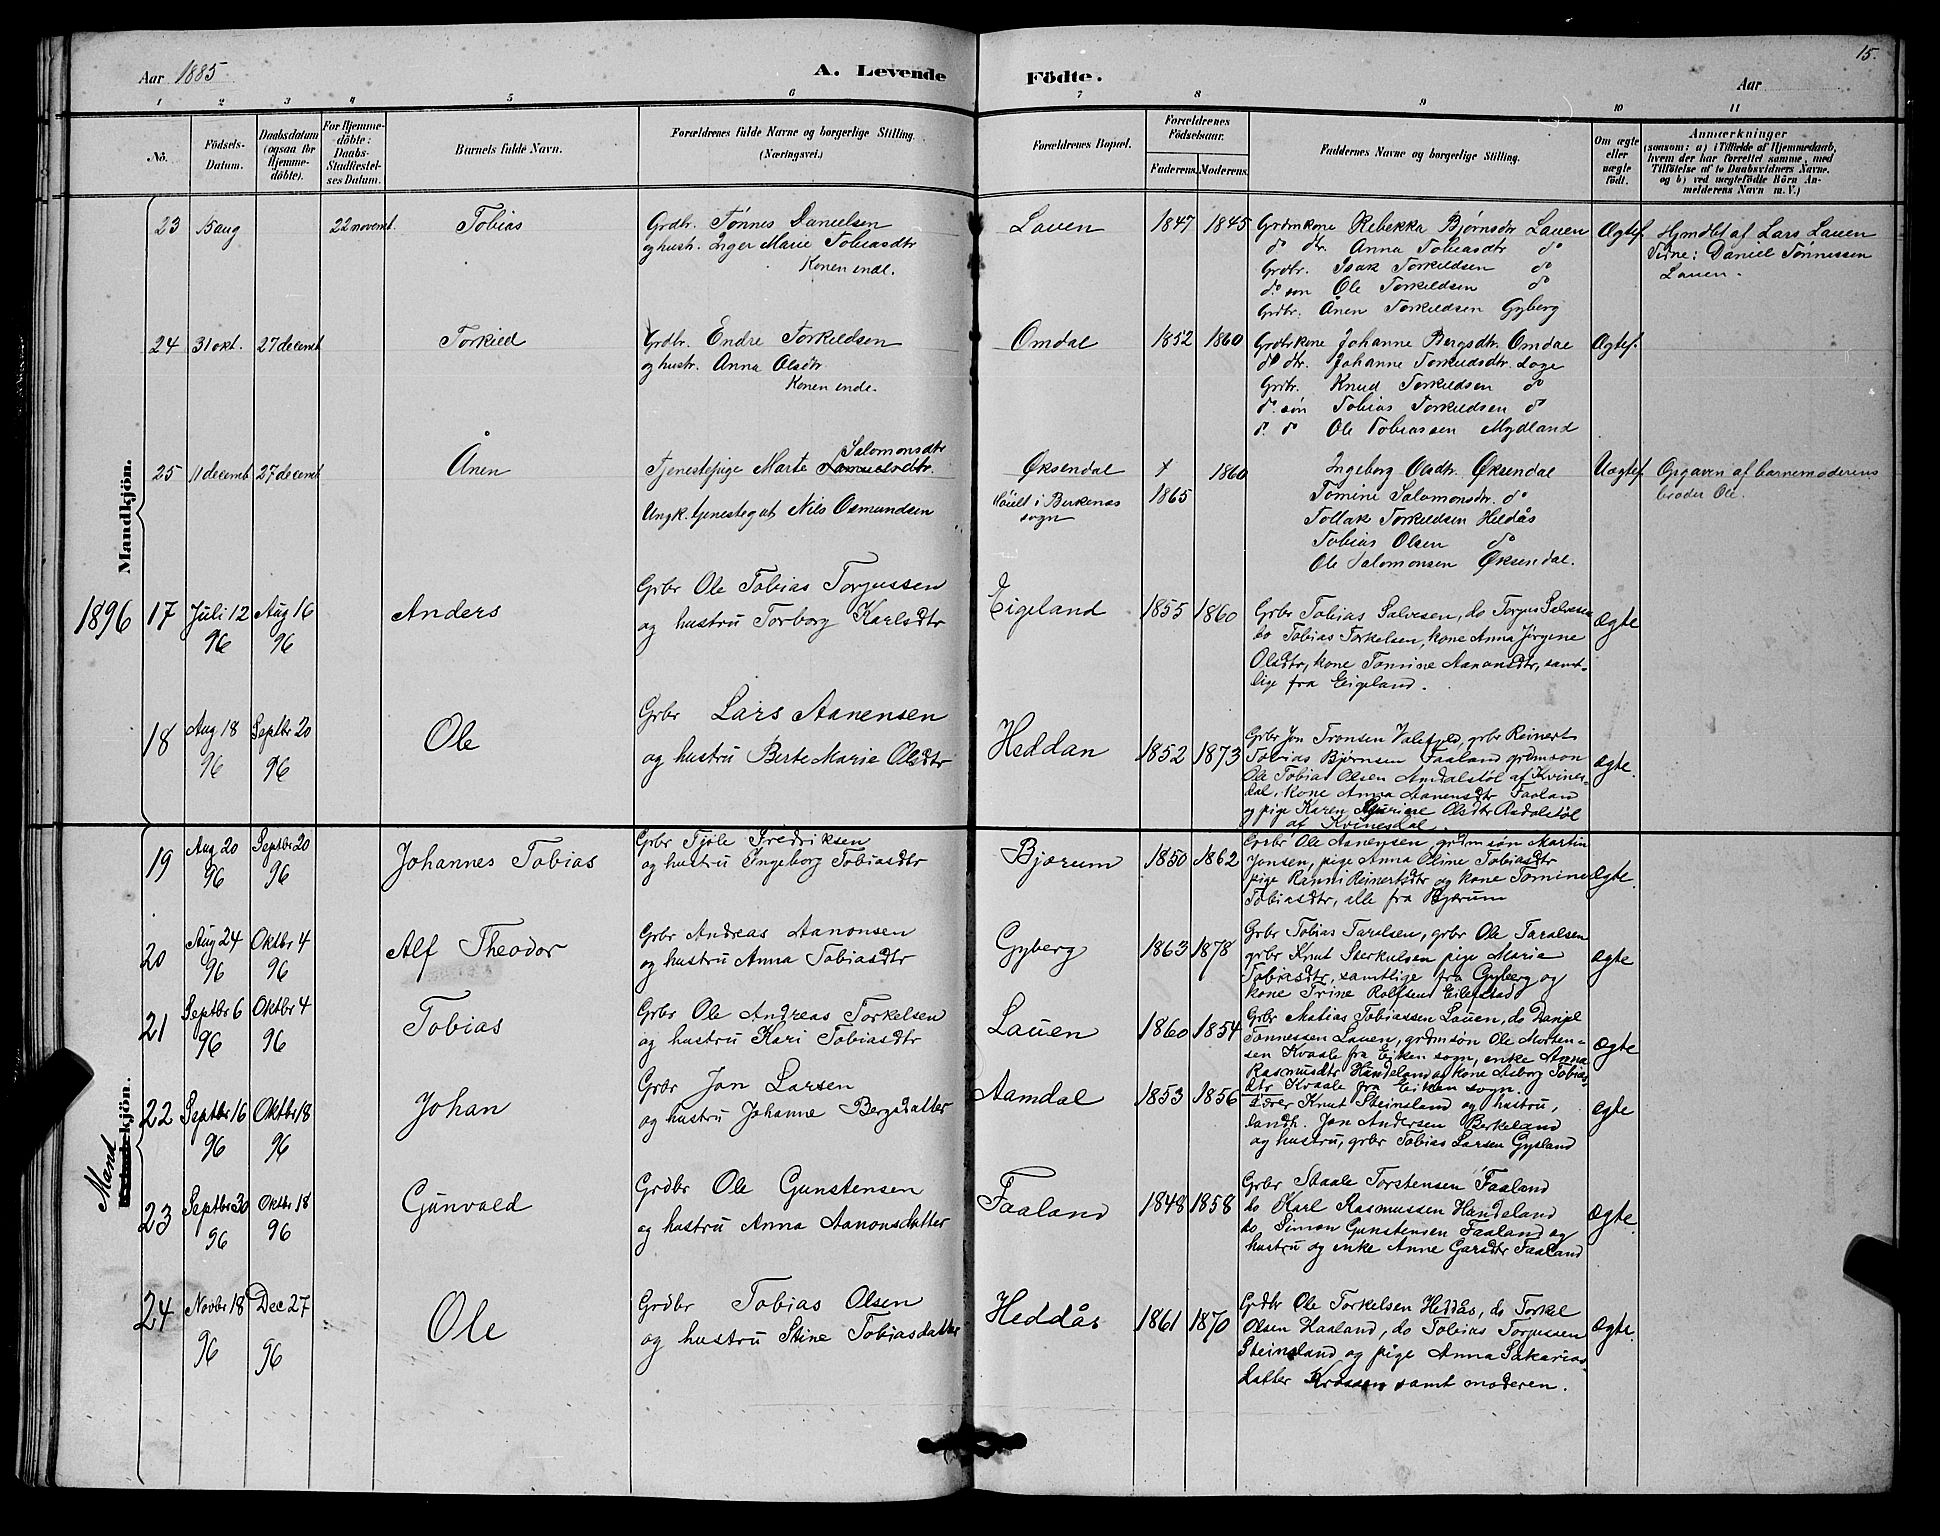 Aar 1885
A. Levende Födte.
Aar
15.
1 2 3 4 5 6 7 8 9 10 11
No.
Födsels-Datum.
Daabsdatum (ogsaa for Hjemme-döbte).
For Hjemme-döbte: Daabs-Stadfæstel-ses Datum.
Barnets fulde Navn.
Forældrenes fulde Navne og borgerlige Stilling. (Næringsvei.)
Forældrenes Bopæl.
Forældrenes Födselsaar.
Faderens. Moderens.
Faddernes Navne og borgerlige Stilling.
Om ægte eller uægte födt.
Anmærkninger
(saasom: a) i Tilfælde af Hjemmedaab,
hvem der har forrettet samme, med
Tilföielse af to Daabsvidners Navne.
og b) ved uægtefödte Börn An-
melderens Navn m. V.)
Mandkjön.
23 15 aug 22 novembt. Tobias Grdbr. Tønnes Danielsen Lauen 1847 1845 Grdmkone Rebekka Bjørnsdr Lauen Ægtef. Hjmdbt af Lars Lauen
og hustr. Inger Marie Tobiasdtr do dtr. Anna Tobiasdtr do Vidne: Daniel Tønnessen
Konen indl. Grdbr. Isak Torkildsen do Lauen.
do. søn Ole Torkildsen do
Grdbr. Ånen Torkildsen Gyberg
24 31 okt. 27 decembt Torkild Grdbr. Endre Torkildsen Omdal 1852 1860 Grdbrkone Johanne Bergsdtr. Omdal Ægtef.
og hustr. Anna Olsdtr do dtr. Johanne Torkildsdtr. Loge
Konen indl. Grdbr. Knud Torkildsen do
do. søn Tobias Torkildsen do
do. do Ole Tobiassen Mydland
25 11 decembt 27 decembt Ånen Tjenestepige Marte Salomonsdtr Øksendal + 1860 Ingeborg Olsdtr. Øksendal Uægtef. Opgaven af barnemoderens
Ungk. tjenestegut Nils Osmundsen i Birkenæs sogn 1865 Tomine Salomonsdtr. do broder Ole.
Tollak Torkildsen Heldås
Tobias Olsen do
Ole Salomonsen Øksendal.
1896 17 Juli 12 96 Aug 16 96 Anders Grbr Ole Tobias Torjussen Eigeland 1855 1860 Grbr Tobias Salvesen, do Torjus Salvesen ægte
og hustru Torborg Karlsdtr do Tobias Torkelsen, kone Anna Jørgine
Olsdtr, kone Tomine Aanonsdtr, samt-
lige fra Eigeland.
18 Aug 18 96 Septbr 20 96 Ole Grbr Lars Aanensen Heddan 1852 1873 Grbr Jon Tronsen, grbr Reinert ægte.
og hustru Berte Marie Olsdtr Tobias Bjørnsen Faaland grdmson
Ole Tobias Olsen Andalstøl af Kvines-
dal, kone Anna Aanensdtr Faaland
og pige Karen Olsdtr Andalstøl
af Kvinesdal.
19 Aug 20 96 Septbr 20 96 Johannes Tobias Grbr Tjøle Fredriksen Bjærum 1850 1862 Grbr Ole Aanensen, grdmsøn Martin ægte.
og hustru Ingeborg Tobiasdtr Jonsen, pige Anna Oline Tobiasdtr
pige Ranni Reinertsdtr og kone Tomine
Tobiasdtr, alle fra Bjærum
20 Aug 24 96 Oktbr 4 96 Alf Theodor Grbr Andreas Aanonsen Gyberg 1863 1878 Grbr Tobias Taralsen, grbr Ole Taralsen ægte
og hustru Anna Tobiasdtr grbr Knut Sterkulsen pige Marie
Tobiasdtr, samtlige fra Gyberg og
kone Trine Rolfsen Eilefstad
21 Septbr 6 96 Oktbr 4 96 Tobias Grbr Ole Andreas Torkelsen Lauen 1860 1854 Grbr Matias Tobiassen Lauen, do Daniel ægte
og hustru Kari Tobiasdtr Tønnessen Lauen, grdmsøn Ole Morten-
sen Kvaale fra Eiken sogn, enke Anna
Rasmusdtr Handeland og kone Aaborg Tobias-
dtr Kvaale fra Eiken sogn.
Mand
kjön.
22 Septbr 16 96 Oktbr 18 96 Johan Grbr Jon Larsen Aamdal 1853 1856 Lærer Knut Steinsland og hustru, ægte
og hustru Johanne Bergsdatter landh. Jon Andersen Berkeland
og hustru, grbr Tobias Larsen Gysland
23 Septbr 30 96 Oktbr 18 96 Gunvald Grdbr Ole Gunstensen Faaland 1848 1858 Grbr Staale Torstensen Faaland ægte
og hustru Anna Aanonsdatter do Karl Rasmussen Handeland
do Simon Gunstensen Faaland og
hustru og enke Anne Garsdtr Faaland
24 Novbr 18 96 Dec 27 96 Ole Grdbr Tobias Olsen Heddås 1861 1870 Grdbr Ole Torkelsen Heddås, do Torkel ægte.
og hustru Stine Tobiasdatter Olsen Haaland, do Tobias Torjussen
Steinsland og pige Anna Sakarias-
datter Krossen samt moderen.